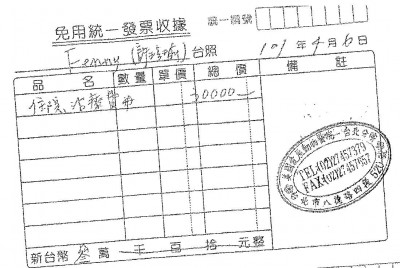 免用統一發票收據
統一編號
Fenny 台照
101年4月6日
品名 數量 單價 總價 備註
住院、治療費用 30000—
TEL:(02)27457379
FAX:(02)27457657
台北市八德路四段
新台幣 叁萬 千 百 拾 元整